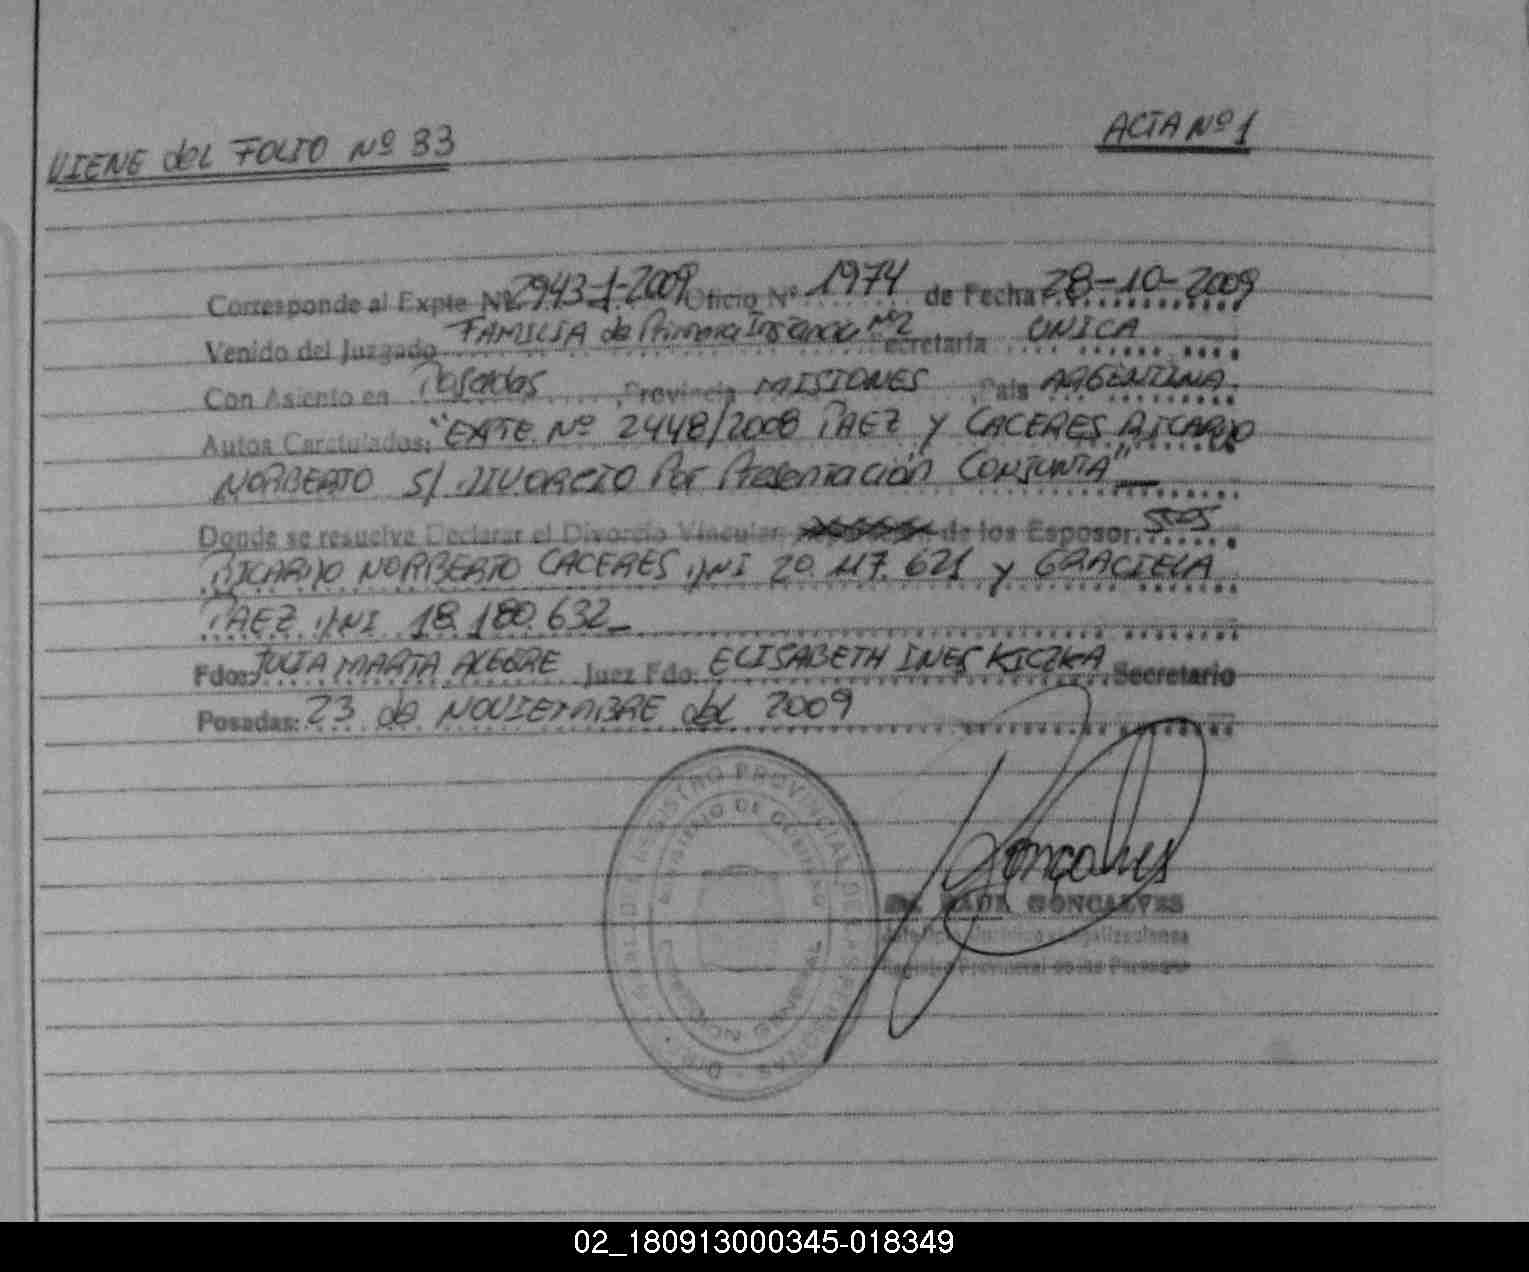 VIENE del FOLIO Nº 33
ACTA Nº 1
Corresponde al Expte Nº 2943-1-2009 Oficio Nº 1974 de Fecha 28-10-2009
Venido del Juzgado FAMILIA de Primera Instancia Nº2 Secretaria UNICA
Con Asiento en Posadas, Provincia MISIONES, Pais ARGENTINA.
Autos Caratulados: "EXPTE. Nº 2448/2008 PAEZ Y CACERES RICARDO
NORBERTO S/ DIVORCIO Por Presentación CONJUNTA"
Donde se resuelve Declarar el Divorcio Vincular de los Esposos
RICARDO NORBERTO CACERES DNI 20.117.621 y GRACIELA
PAEZ DNI 18.180.632
Fdo: JULIA MARTA ALEGRE Juez Fdo: ELISABETH INES KICZKA Secretario
Posadas: 23 de NOVIEMBRE del 2009
REGISTRO PROVINCIAL DE LAS PERSONAS
MINISTERIO DE GOBIERNO
Goncalves
Dr. RAUL GONCALVES
Registro Provincial de las Personas
02_180913000345-018349